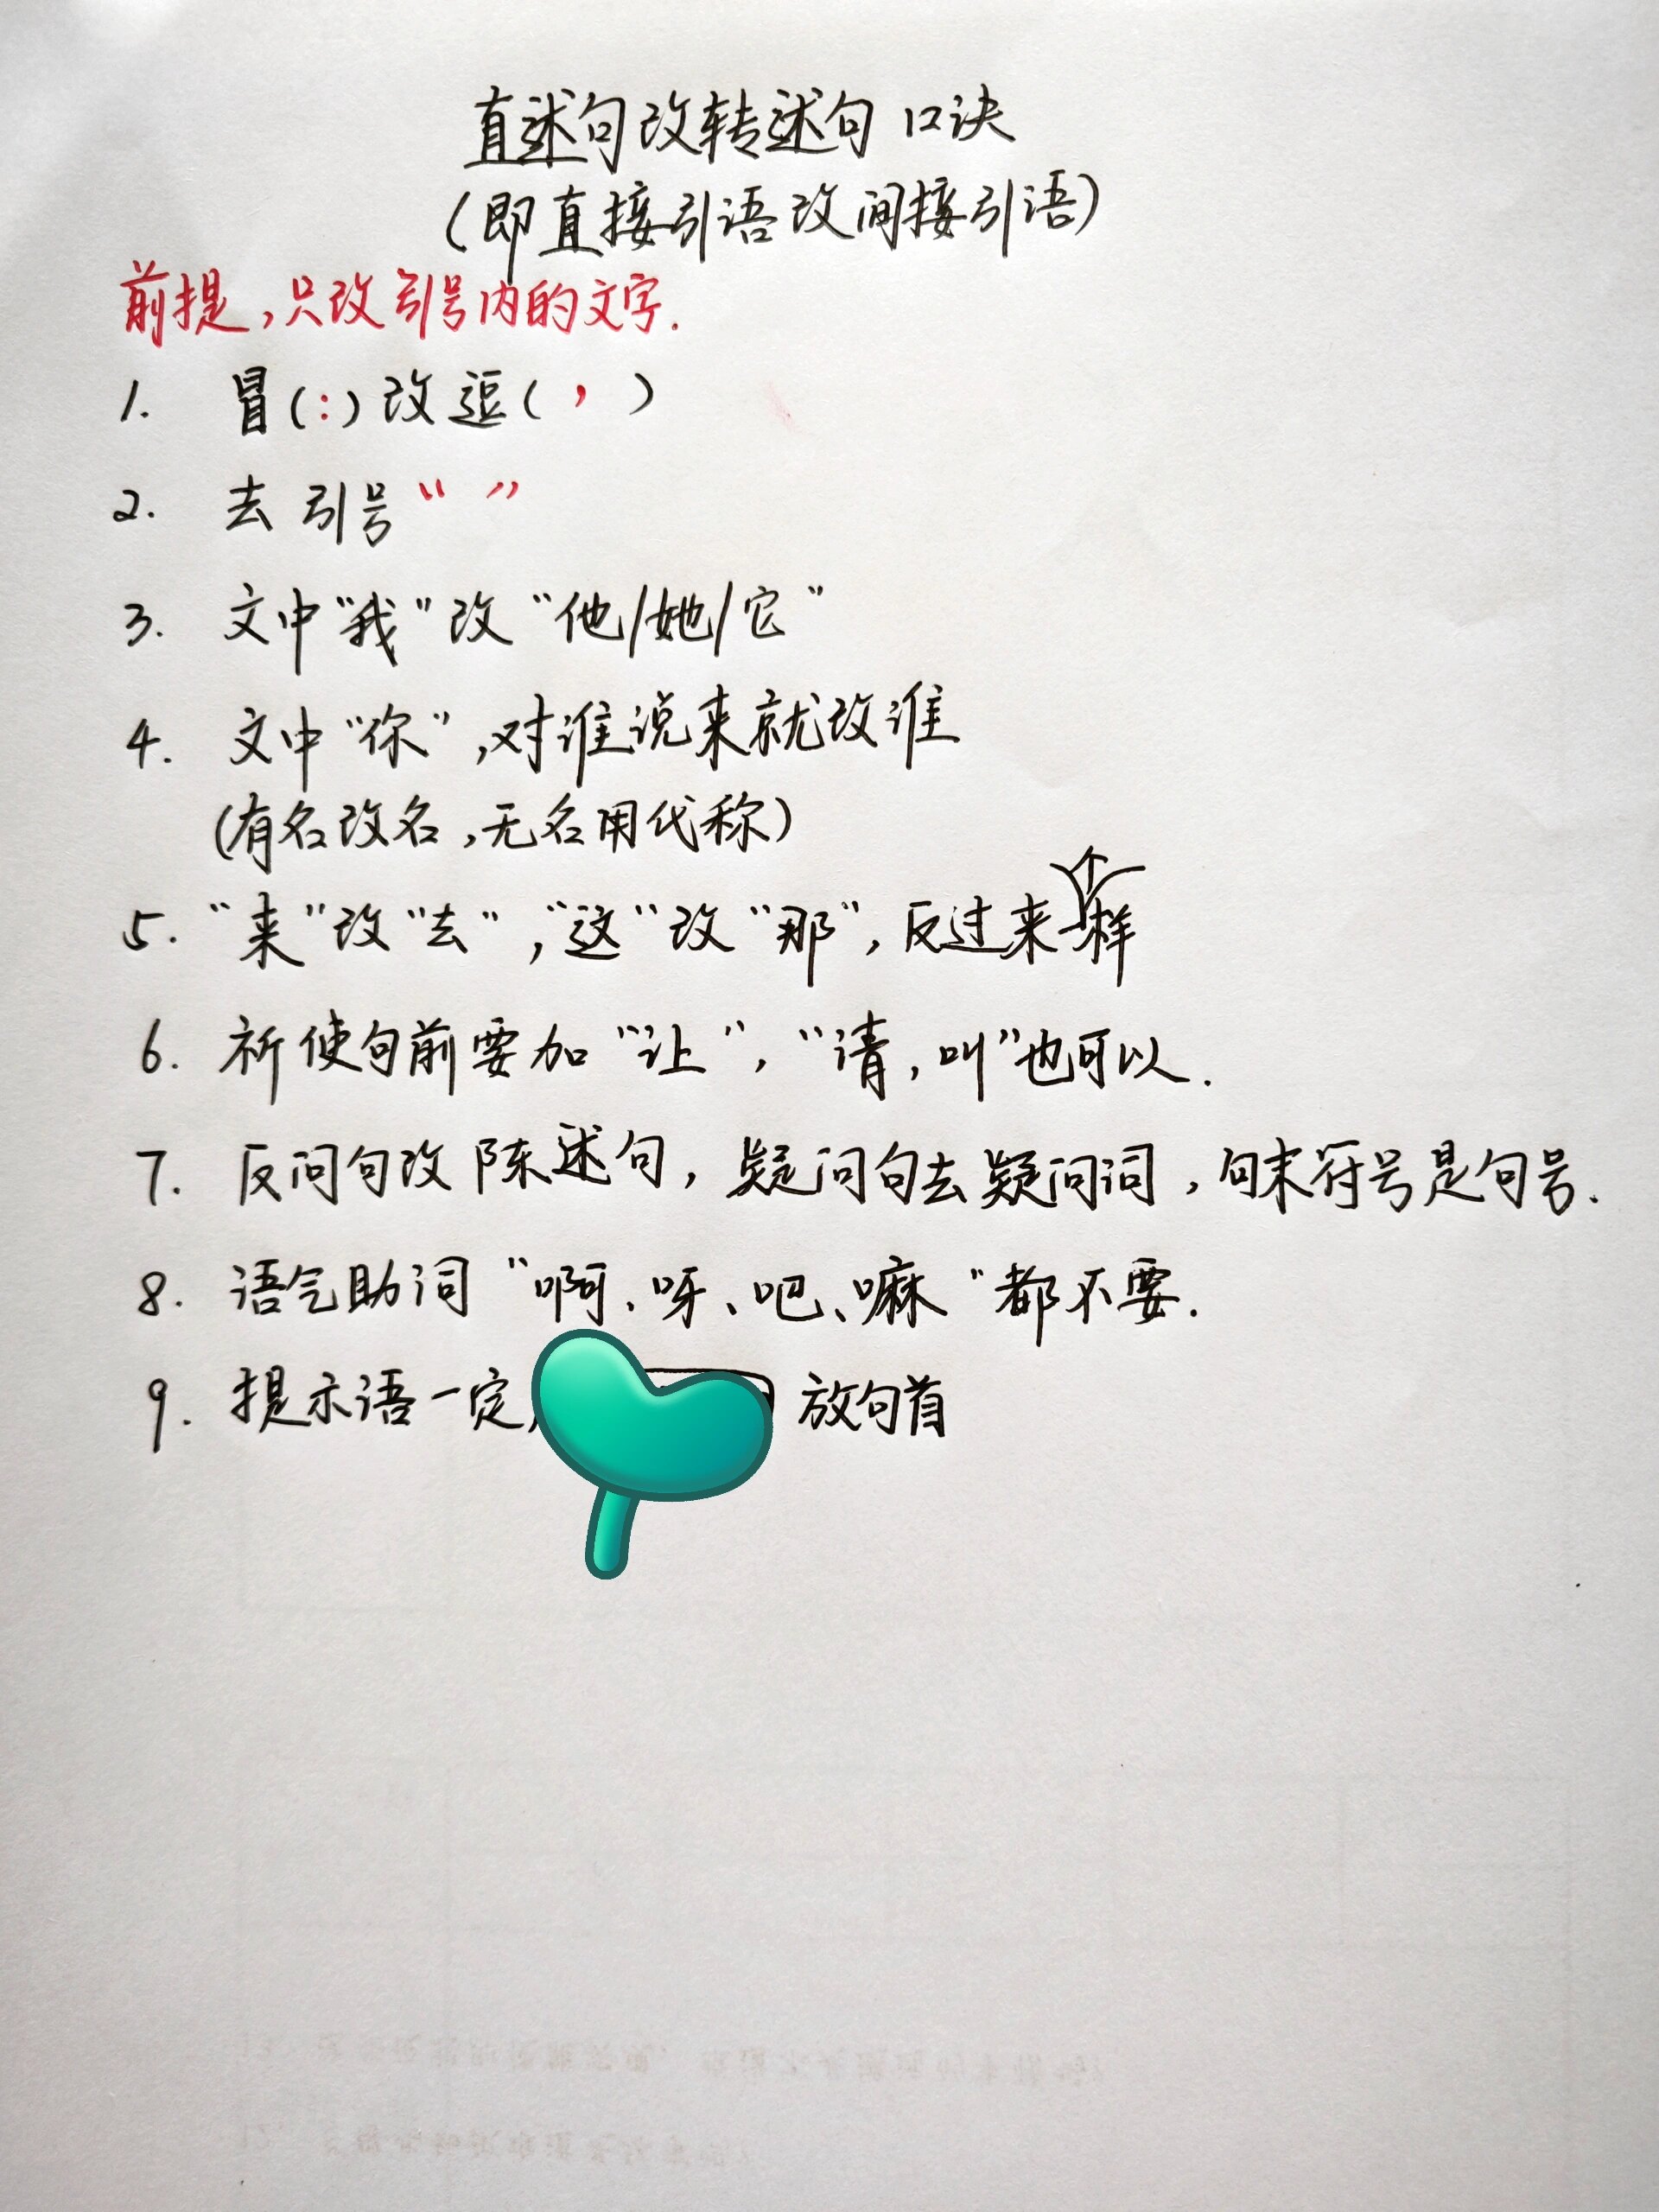 直述句改转述句 口诀
(即直接引语改间接引语)
前提,只改引号内的文字.
1. 冒(:)改逗(,)
2. 去引号“ ”
3. 文中“我”改“他/她/它”
4. 文中“你”,对谁说来就改谁
(有名改名,无名用代称)
5. “来”改“去”,“这”改“那”,反过来个样
6. 祈使句前要加“让”,“请,叫”也可以.
7. 反问句改陈述句,疑问句去疑问词,句末符号是句号.
8. 语气助词“啊、呀、吧、嘛”都不要.
9. 提示语一定 放句首